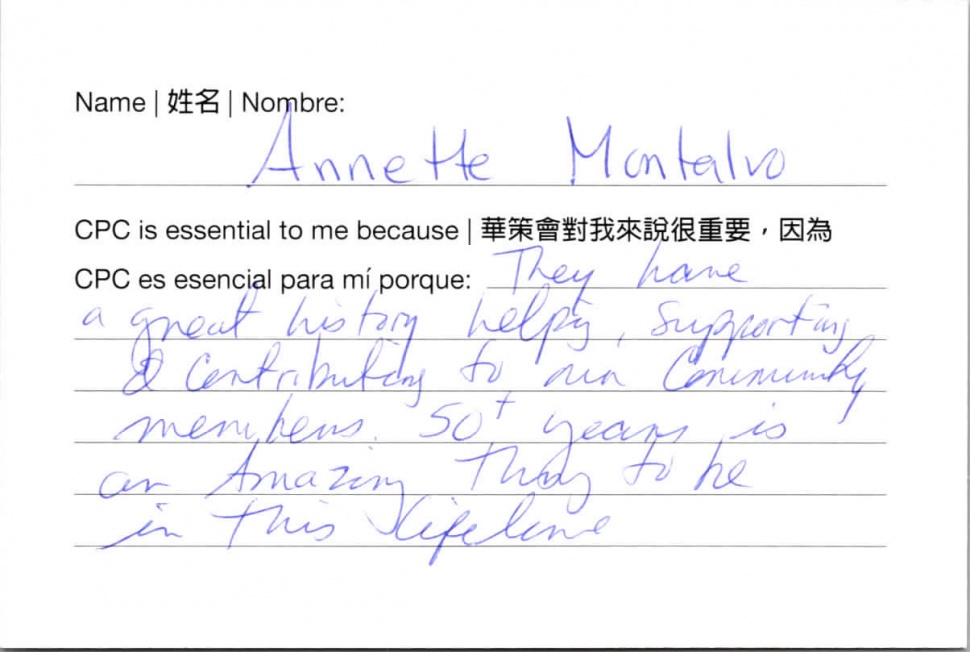 Name | 姓名 | Nombre:
Annette Montalvo
CPC is essential to me because | 華策會對我來說很重要，因為
CPC es esencial para mí porque: They have
a great history helping, Supporting
& Contributing to our Community
members. 50+ years is
an Amazing Thing to be
in This Lifeline